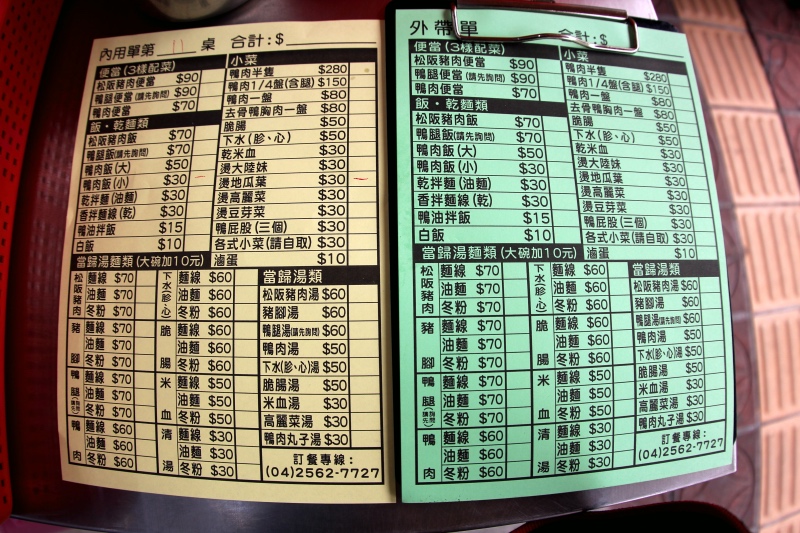 內用單第 11 桌 合計:$
便當(3樣配菜)
松阪豬肉便當 $90
鴨腿便當(請先詢問) $90
鴨肉便當 $70
飯・乾麵類
松阪豬肉飯 $70
鴨腿飯(請先詢問) $70
鴨肉飯(大) $50
鴨肉飯(小) $30
乾拌麵(油麵) $30
香拌麵線(乾) $30
鴨油拌飯 $15
白飯 $10
小菜
鴨肉半隻 $280
鴨肉1/4盤(含腿) $150
鴨肉一盤 $80
去骨鴨胸肉一盤 $80
脆腸 $50
下水(胗、心) $50
乾米血 $30
燙大陸妹 $30
燙地瓜葉 $30
燙高麗菜 $30
燙豆芽菜 $30
鴨屁股(三個) $30
各式小菜(請自取) $30
滷蛋 $10
當歸湯麵類(大碗加10元)
松阪豬肉
麵線 $70
油麵 $70
冬粉 $70
豬腳
麵線 $70
油麵 $70
冬粉 $70
鴨腿(請先詢問)
麵線 $70
油麵 $70
冬粉 $70
鴨肉
麵線 $60
油麵 $60
冬粉 $60
下水(胗、心)
麵線 $60
油麵 $60
冬粉 $60
脆腸
麵線 $60
油麵 $60
冬粉 $60
米血
麵線 $50
油麵 $50
冬粉 $50
清湯
麵線 $30
油麵 $30
冬粉 $30
當歸湯類
松阪豬肉湯 $60
豬腳湯 $60
鴨腿湯(請先詢問) $60
鴨肉湯 $50
下水(胗、心)湯 $50
脆腸湯 $50
米血湯 $30
高麗菜湯 $30
鴨肉丸子湯 $30
訂餐專線:
(04)2562-7727
外帶單 合計:$
便當(3樣配菜)
松阪豬肉便當 $90
鴨腿便當(請先詢問) $90
鴨肉便當 $70
飯・乾麵類
松阪豬肉飯 $70
鴨腿飯(請先詢問) $70
鴨肉飯(大) $50
鴨肉飯(小) $30
乾拌麵(油麵) $30
香拌麵線(乾) $30
鴨油拌飯 $15
白飯 $10
小菜
鴨肉半隻 $280
鴨肉1/4盤(含腿) $150
鴨肉一盤 $80
去骨鴨胸肉一盤 $80
脆腸 $50
下水(胗、心) $50
乾米血 $30
燙大陸妹 $30
燙地瓜葉 $30
燙高麗菜 $30
燙豆芽菜 $30
鴨屁股(三個) $30
各式小菜(請自取) $30
滷蛋 $10
當歸湯麵類(大碗加10元)
松阪豬肉
麵線 $70
油麵 $70
冬粉 $70
豬腳
麵線 $70
油麵 $70
冬粉 $70
鴨腿(請先詢問)
麵線 $70
油麵 $70
冬粉 $70
鴨肉
麵線 $60
油麵 $60
冬粉 $60
下水(胗、心)
麵線 $60
油麵 $60
冬粉 $60
脆腸
麵線 $60
油麵 $60
冬粉 $60
米血
麵線 $50
油麵 $50
冬粉 $50
清湯
麵線 $30
油麵 $30
冬粉 $30
當歸湯類
松阪豬肉湯 $60
豬腳湯 $60
鴨腿湯(請先詢問) $60
鴨肉湯 $50
下水(胗、心)湯 $50
脆腸湯 $50
米血湯 $30
高麗菜湯 $30
鴨肉丸子湯 $30
訂餐專線:
(04)2562-7727